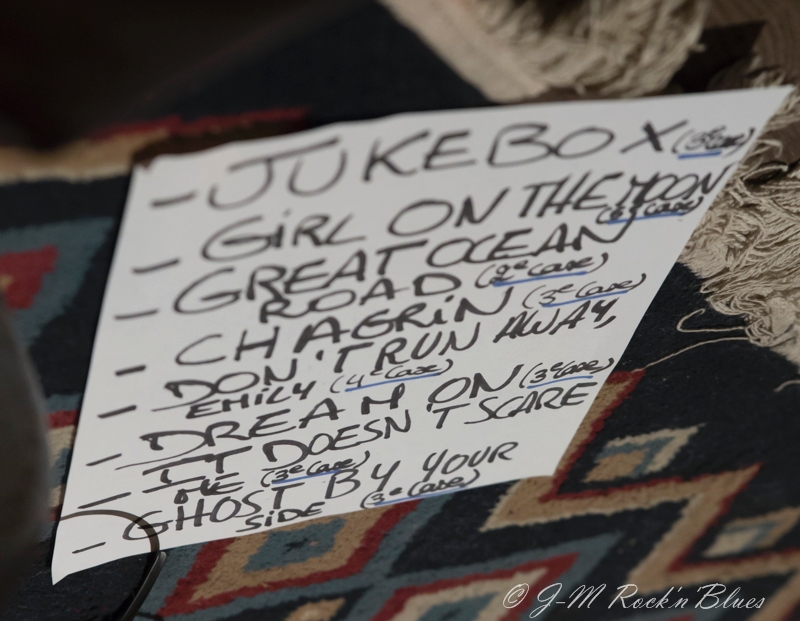 - JUKEBOX (3e case)
- GIRL ON THE MOON
(6e case)
- GREAT OCEAN
ROAD (2e case)
- CHAGRIN (3e case)
- DON'T RUN AWAY,
EMILY (4e case)
- DREAM ON (3e case)
- IT DOESN'T SCARE
ME (3e case)
- GHOST BY YOUR
SIDE (3e case)
© J-M Rock'n'Blues